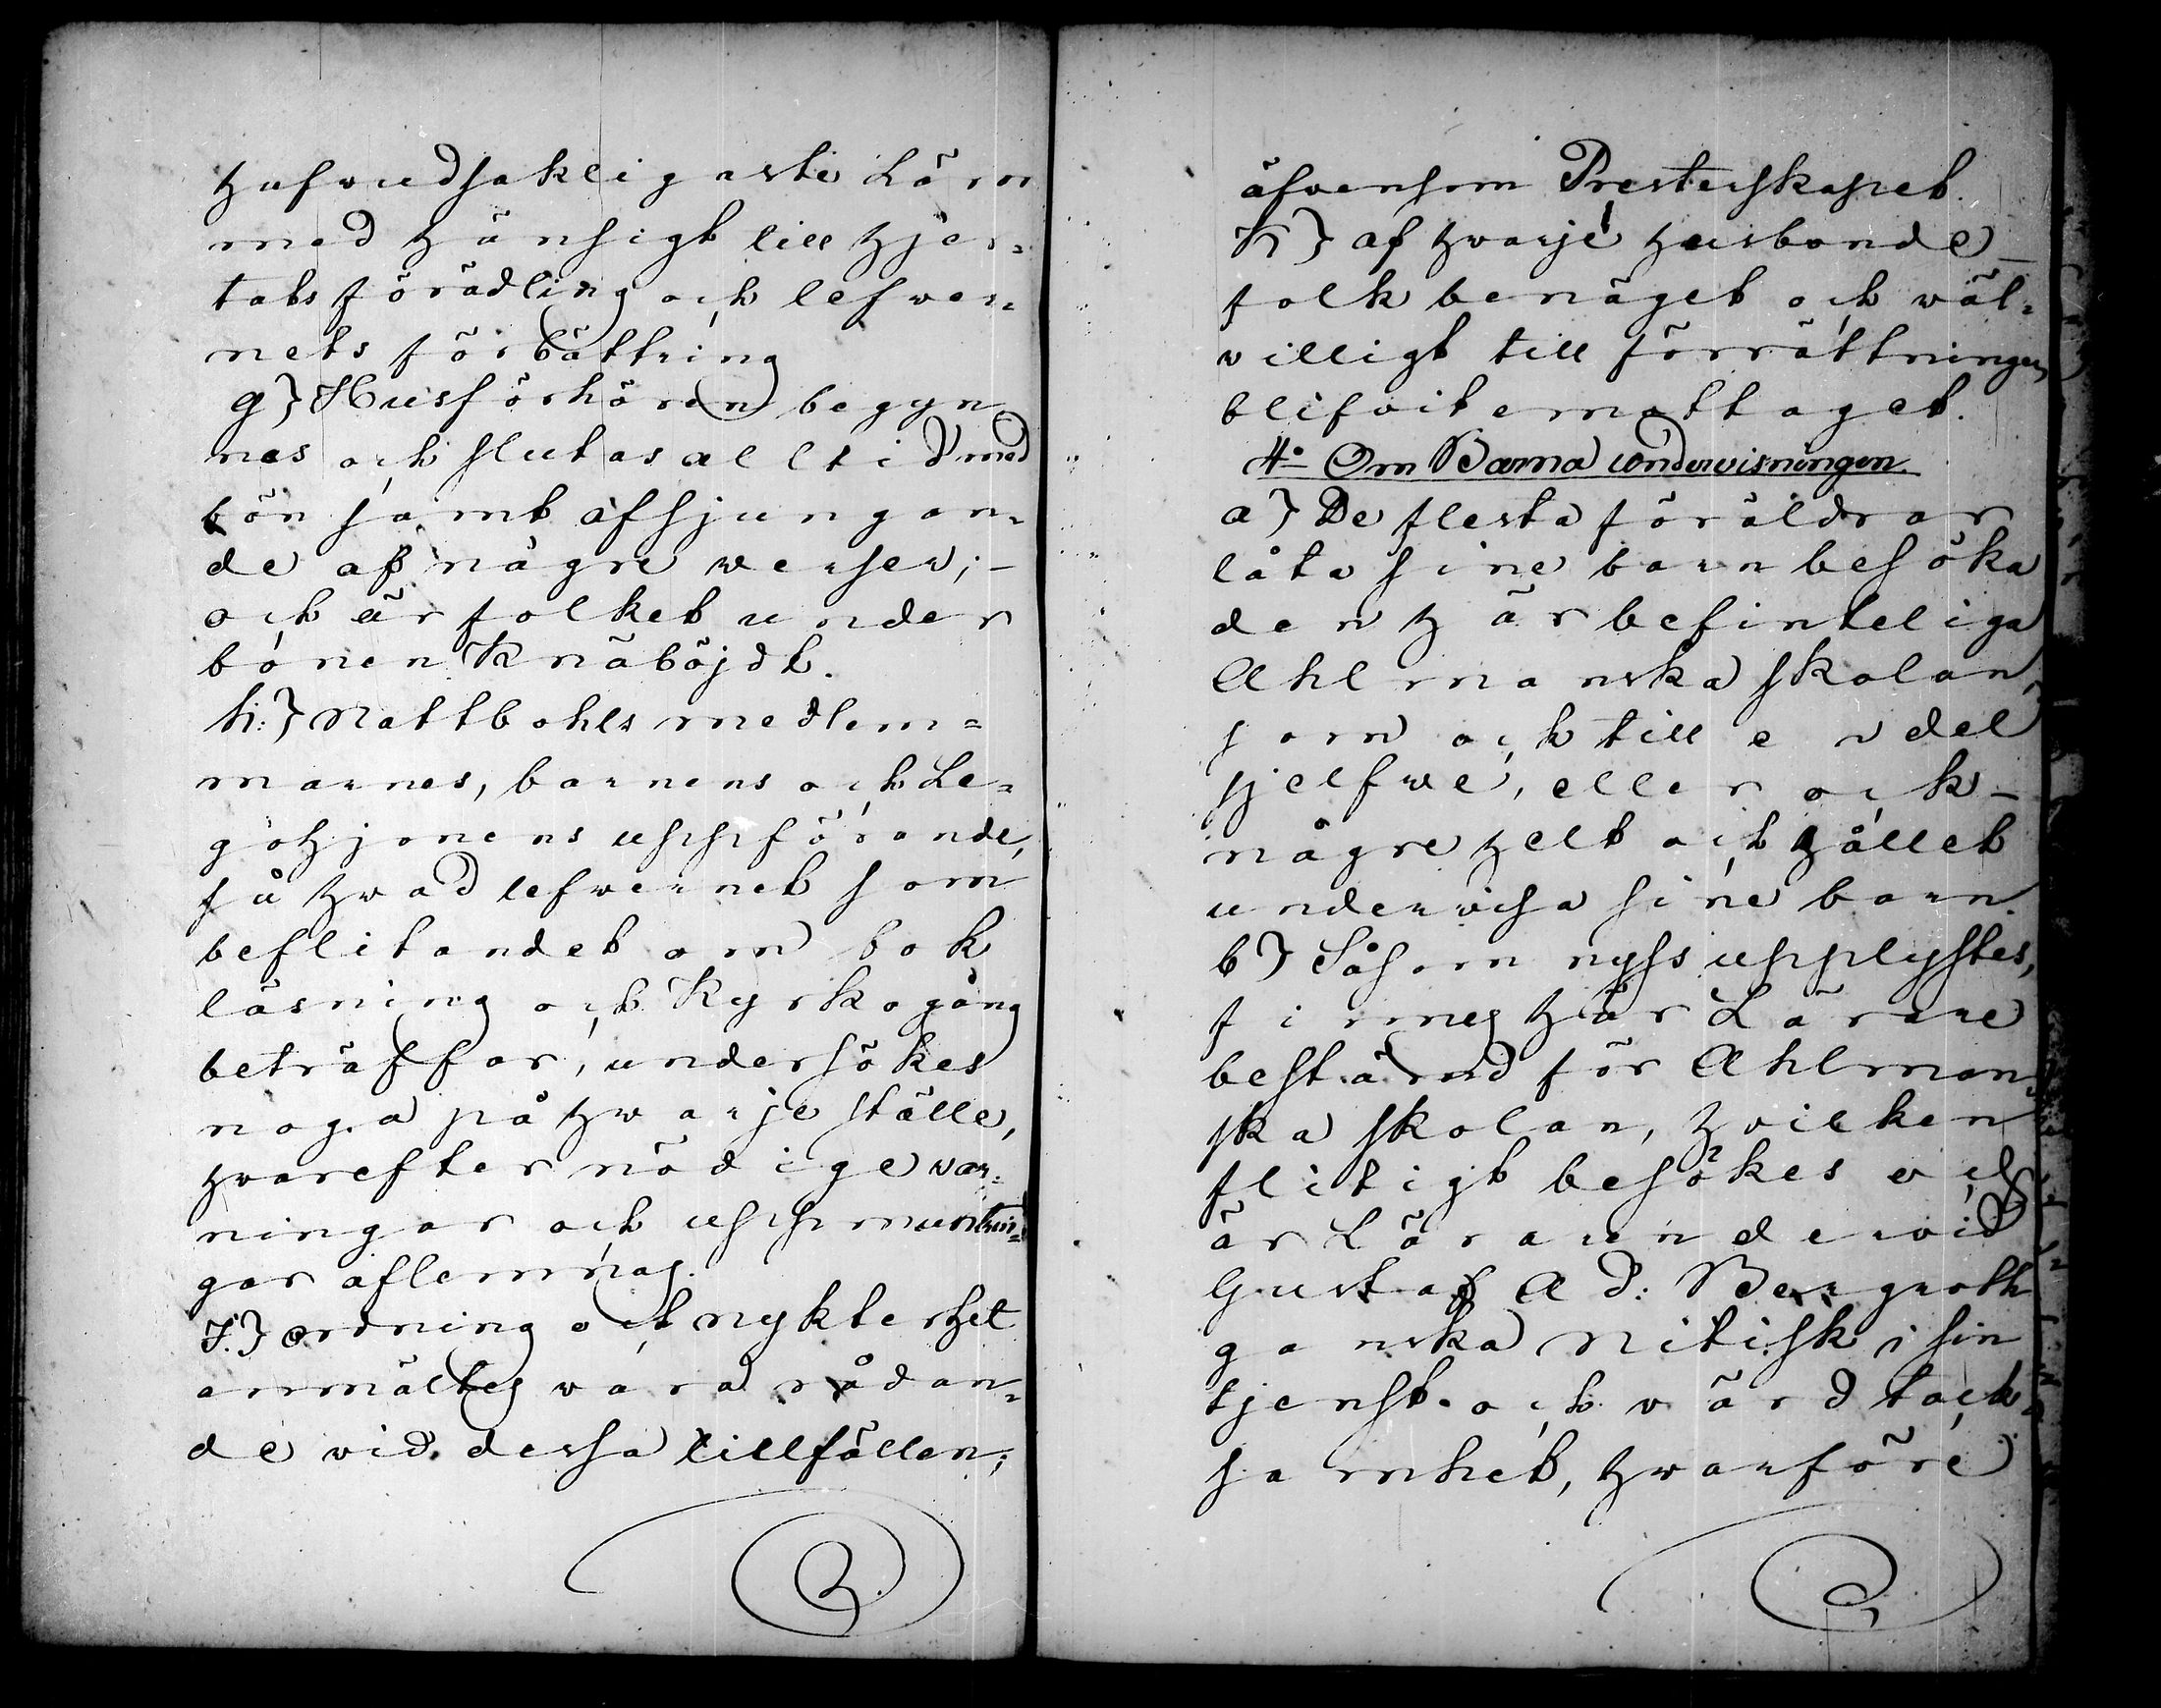 hufwudsakligaste Lärn
med hänsigt till hjer=
tats förädling och lefwer=
nets förbättring
g} Husförhören begyn
nas och slutas alltid med
bön samt afsjungan=
de af någre werser;-
och är folket under
bönen Knäböjdt.
h:} Nattbohls medlem=
marnes, barnens och Le=
gohjonens uppförande,
så hwad lefwernet som
beflitandet om bok
läsning och Kyrkogång
beträffar, undersökes
noga på hwarje ställe,
hwarefter nödige war=
ningar och uppmuntrin=
gar aflemnas.
I.} ordning och nykterhet
anmältes wara rådan=
de wid dessa tillfällen;
äfvensom Presterskapet.
K} af hwarje husbonde-
folk benäget och wäl=
villigt till förrättningen
blifvit emottaget.
4º Om Barna undervisningen
a} De flesta föräldrar
låta sine barn besöka
den här befinteliga
Ahlmanska skolan,
som och till en del
sjelfwe, eller ock-
någre helt och hållet
underwisa sine barn.
b} Såsom nyss upplystes,
finnes här Lärare
bestämd för Ahlman=
ska skolan, hvilken
flitigt besökes och
är Läraren dervid
Gustaf Ad: Bergroth
ganska nitisk i sin
tjenst och wärd tack=
samhet, hwarföre